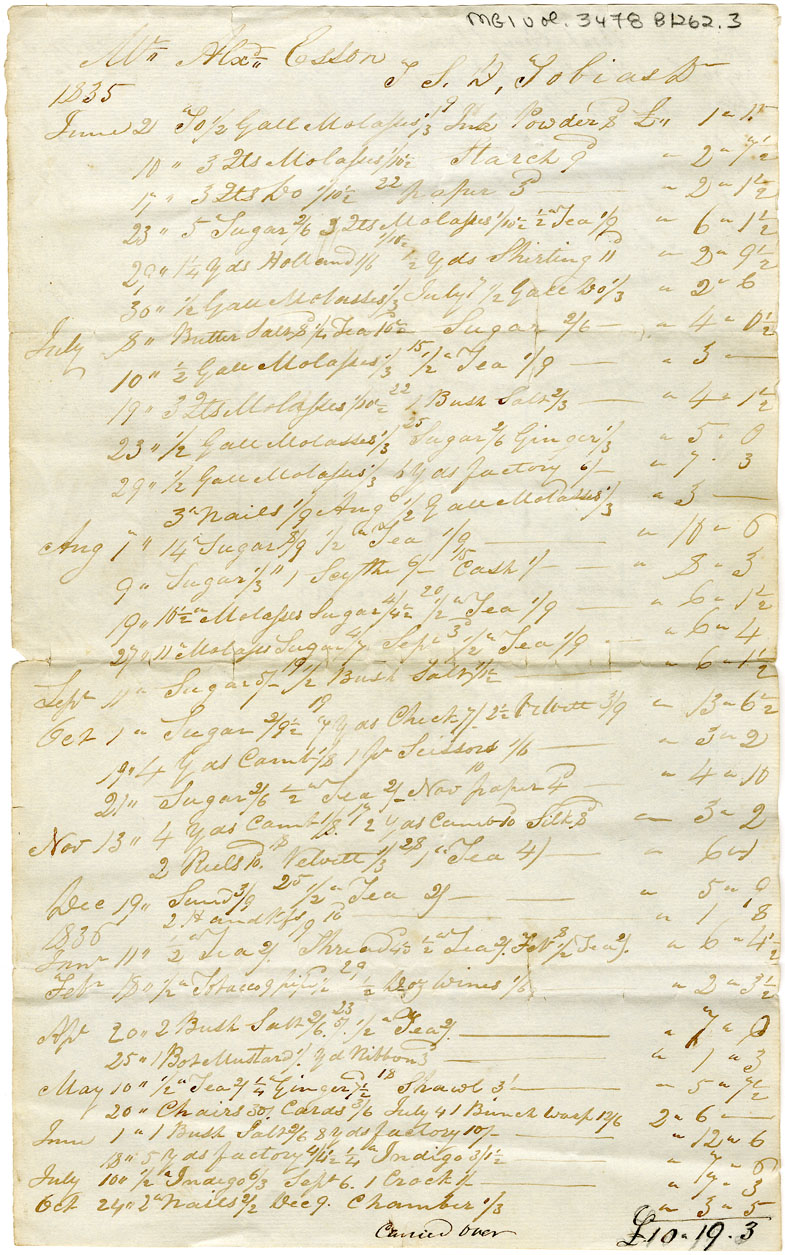 MG 1 Vol. 3478 B1262.3
Mr Alexr Esson
1835 T S. D, Tobias Dr
June 2 To 1/2 Gall Molasses 1/3 9 Ink Powder 8d £" 1 " 1
10 " 3 Qts Molasses 1/10 1/2 Starch 9d " 2 " 7 1/2
17 " 3 Qts Do 1/10 1/2 22 Paper 3d " 2 " 1 1/2
23 " 5 Sugar 2/6 3 Qts Molasses 1/10 1/2 1/2 " Tea 1/9 " 6 " 1 1/2
29 " 1 1/4 Yds Holland 1/6 1/10 1/2 1/2 Yds Shirting 11d " 2 " 9 1/2
30 " 1/2 Gall Molasses 1/3 July 7 1/2 Gall Do 1/3 " 2 " 6
July 8 " Butter Salts 8d 1/4 Tea 10 1/2 Sugar 2/6 " 4 " 0 1/2
10 " 1/2 Gall Molasses 1/3 15 1/2 " Tea 1/9 " 3 —
19 " 3 Qts Molasses 1/10 1/2 22 1 Bush Salt 2/3 " 4 " 1 1/2
23 " 1/2 Gall Molasses 1/3 25 Sugar 2/6 Ginger 1/3 " 5 " 0
29 " 1/2 Gall Molasses 1/3 6 Yds factory 6/- " 7 " 3
3 " Nails 1/9 Aug 6 1/2 Gall Molasses 1/3 " 3 —
Aug 7 " 14 " Sugar 8/9 1/2 " Tea 1/9 " 10 " 6
9 " Sugar 1/3 11 1 Scythe 6/- 15 Cash 1/- " 8 " 3
19 " 10 1/2 " Molasses Sugar 4/4 1/2 20 1/2 " Tea 1/9 " 6 " 1 1/2
27 " 11 " Molass Sugar 4/7 Sept 3 1/2 " Tea 1/9 " 6 " 4
Sept 11 " Sugar 5/- 19 1/2 Bush Salt 1/1 1/2 " 6 " 1 1/2
Oct 1 " Sugar 2/9 1/2 19 7 Yds Check 7/ 2 1/2 Velvett 3/9 " 13 " 6 1/2
19 " 4 Yds Camb 1/8 1 pr Scissors 1/6 " 3 " 2
21 " Sugar 2/6 1/2 " Tea 2/- Nov 10 paper 4d " 4 " 10
Nov 13 " 4 Yds Camb 1/8 17 2 Yds Camb 10 Silk 8d " 3 " 2
2 Reels 10 18 Velvett 1/3 28 1 " Tea 4/ " 6 " 1
Dec 19 " Sund 3/9 25 1/2 " Tea 2/ " 5 " 9
1836 2 Handkfs 10 " 1 " 8
Janr 11 " 1/2 " Tea 2/. Thread 4 1/2 1/2 " Tea 2/. Feb 8 1/2 " Tea 2/. " 6 " 4 1/2
Febr 18 " 1/2 " Tobacco 29 1/2 Doz Wines 1/6 " 2 " 3 1/2
Apr 20 " 2 Bush Salt 23 1/2 " Tea 2/ " 7 "
25 " 1 Bot Mustard 1/. yd Ribbon 3 " 1 " 3
May 10 " 1/2 " Tea 2/ 1/4 Ginger 18 Shawl 3/ " 5 " 7 1/2
20 " Chairs 30/ Cards 3/6 July 4 1 Bunch Warp 12/6 2 " 6 —
June 1 " 1 Bush Salt 2/6 8 Yds factory 10/- " 12 " 6
18 " 5 Yds factory 4/4 1/2 1/4 " Indigo 3/1 1/2 " 7 " 6
July 10 " 1/2 " Indigo 6/3 Sept 6. 1 Crock 1/- " 7 " 3
Oct 24 " 2 " Nails 2/2 Dec 9. Chamber 1/3 " 3 " 5
Carried over £10 " 19 . 3